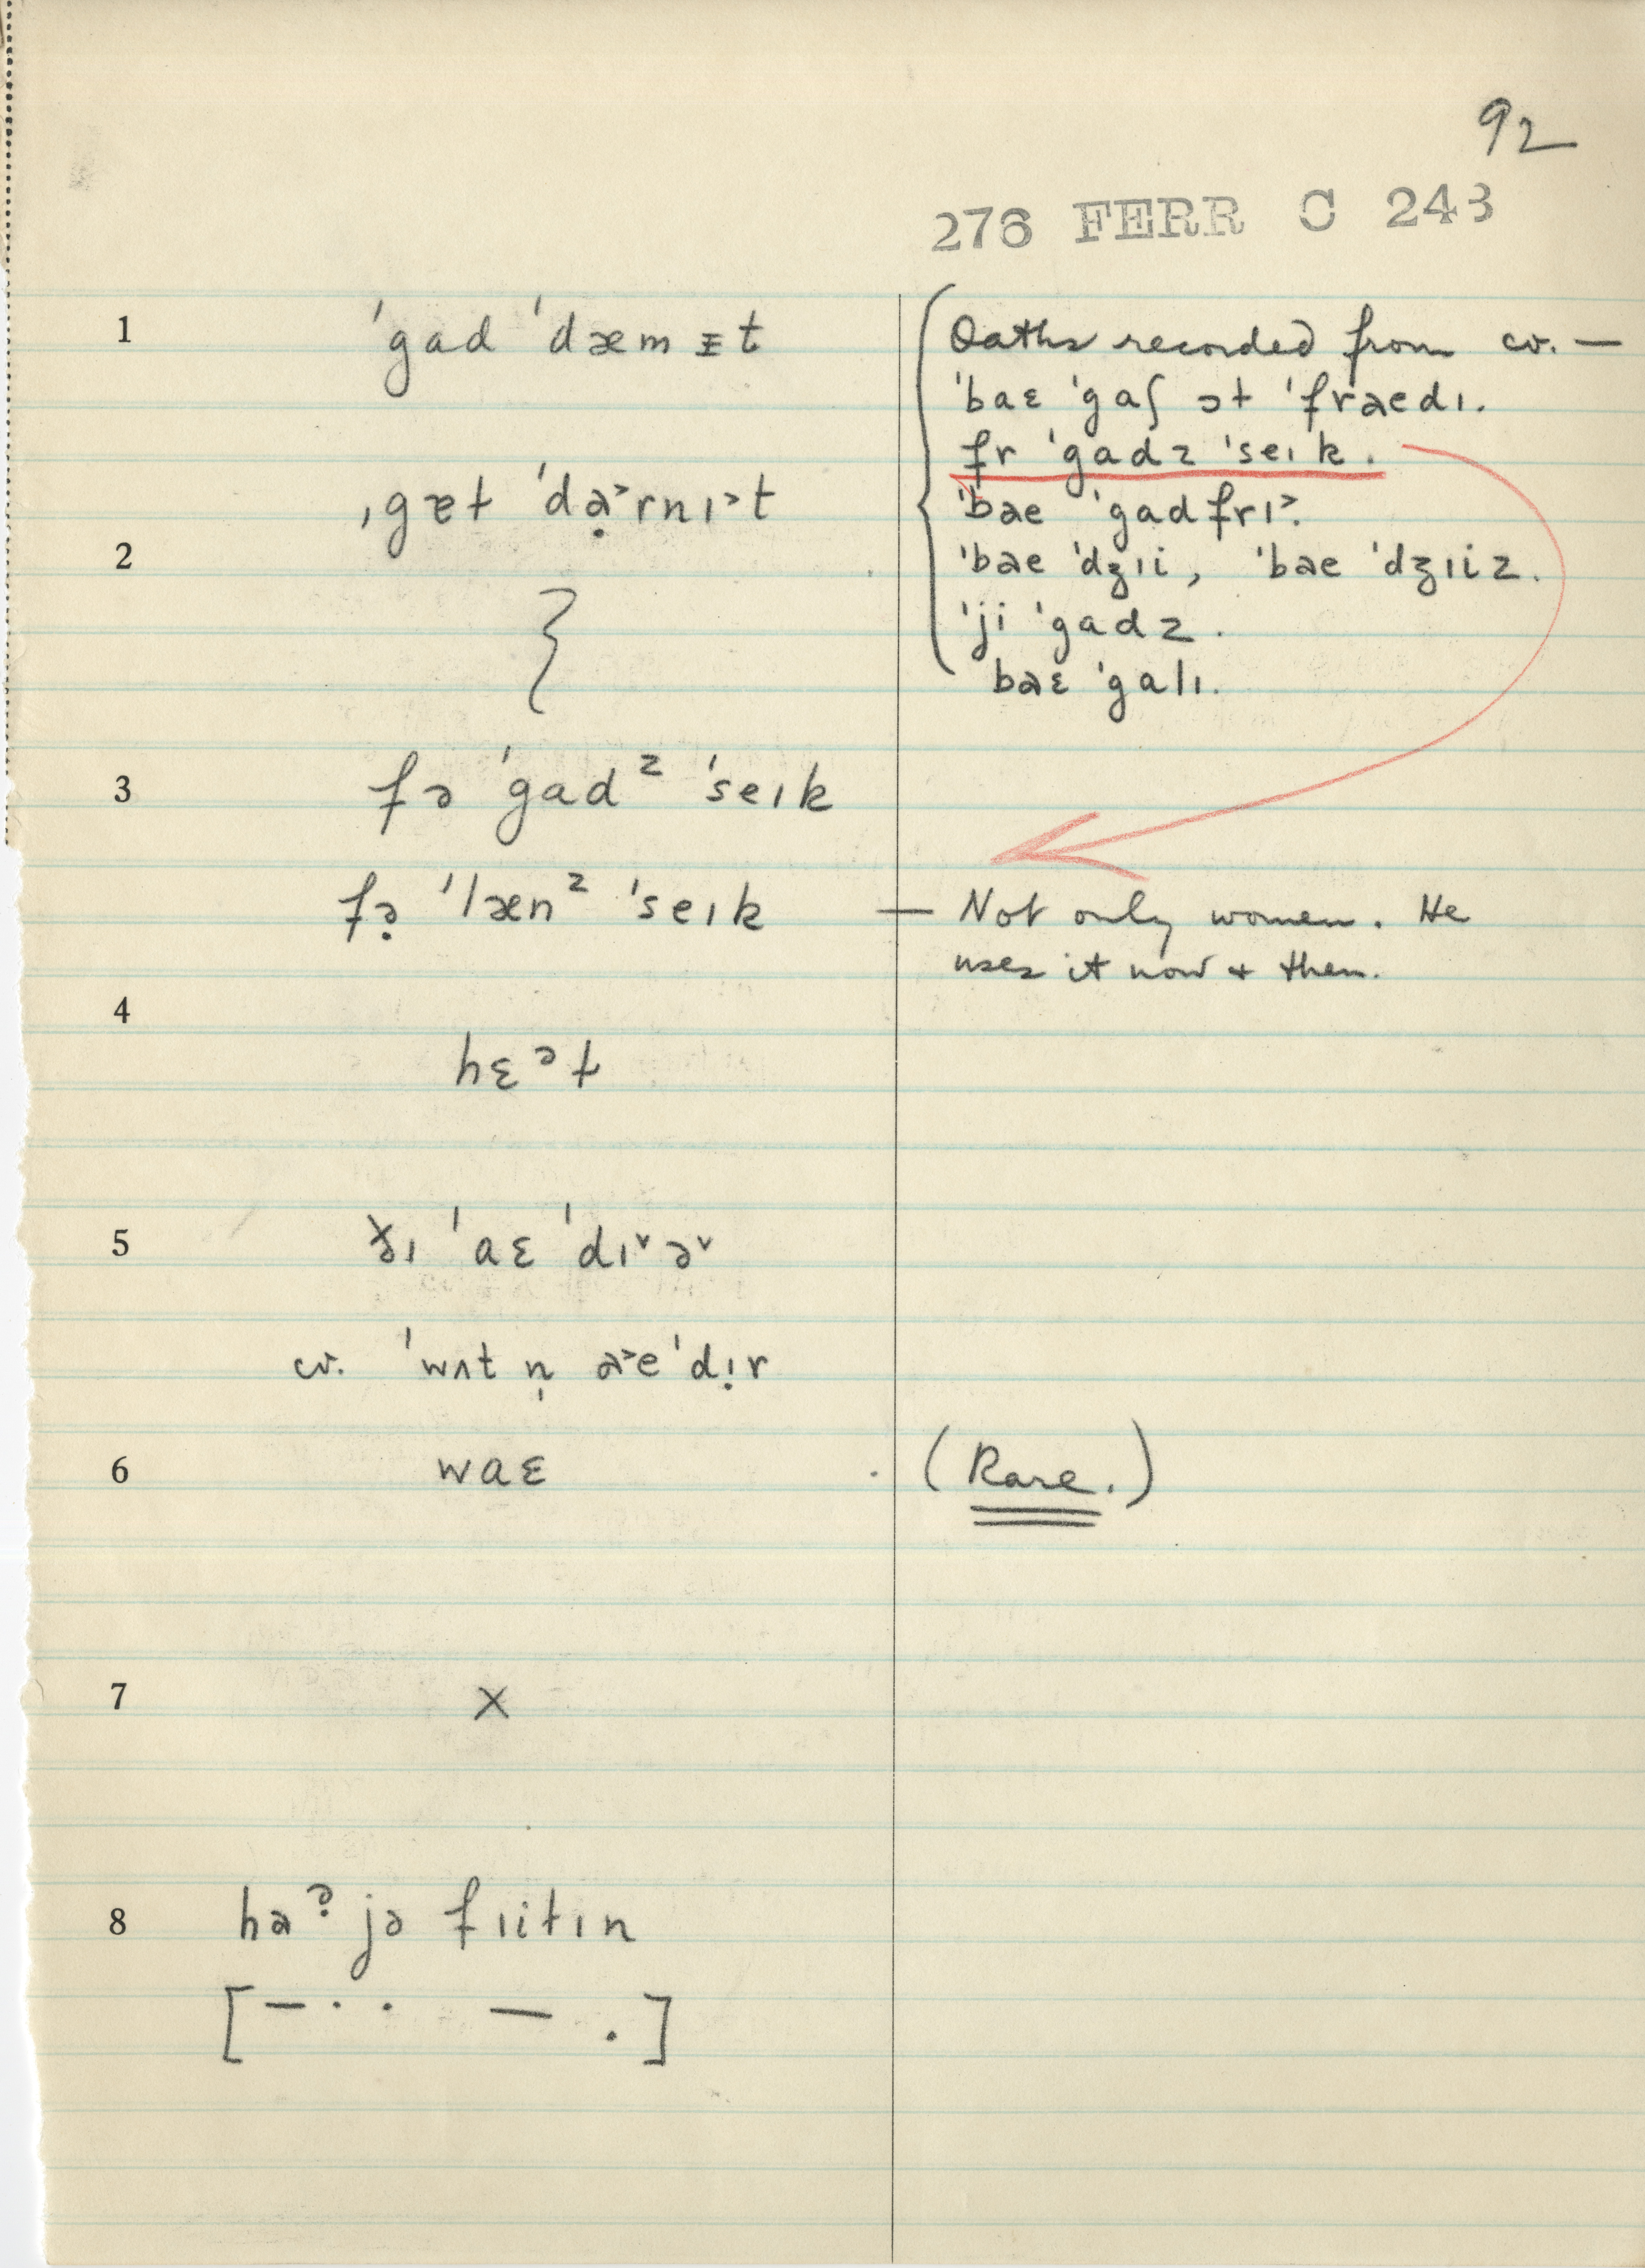 92
276 FERR C 243
1 ˈgad ˈdæm ᵻt
Oaths recorded from cv. —
ˈbaɛ ˈgaʃ ət ˈfrəedɪ.
fr ˈgadz ˈseɪk.
2 ˌgɛt ˈdə̣˃rnɪ˃t
ˈbəe ˈgadfrɪ˃.
ˈbəe ˈdʒɪi, ˈbəe ˈdʒɪiz.
ˈji ˈgadz.
bəɛ ˈgalɪ.
3 fə ˈgadᶻ ˈseɪk
fə̣ ˈlænᶻ ˈseɪk — Not only women. He
uses it now & then.
4 hɛᵊt
5 ðɪ ˈaɛ ˈdɪ˅ə˅
cv. ˈwʌt n̩ ə˃eˈdɪ̣r
6 waɛ (Rare.)
7 x
8 haᵊ̣ jə fɪitɪn
[– · · – .]